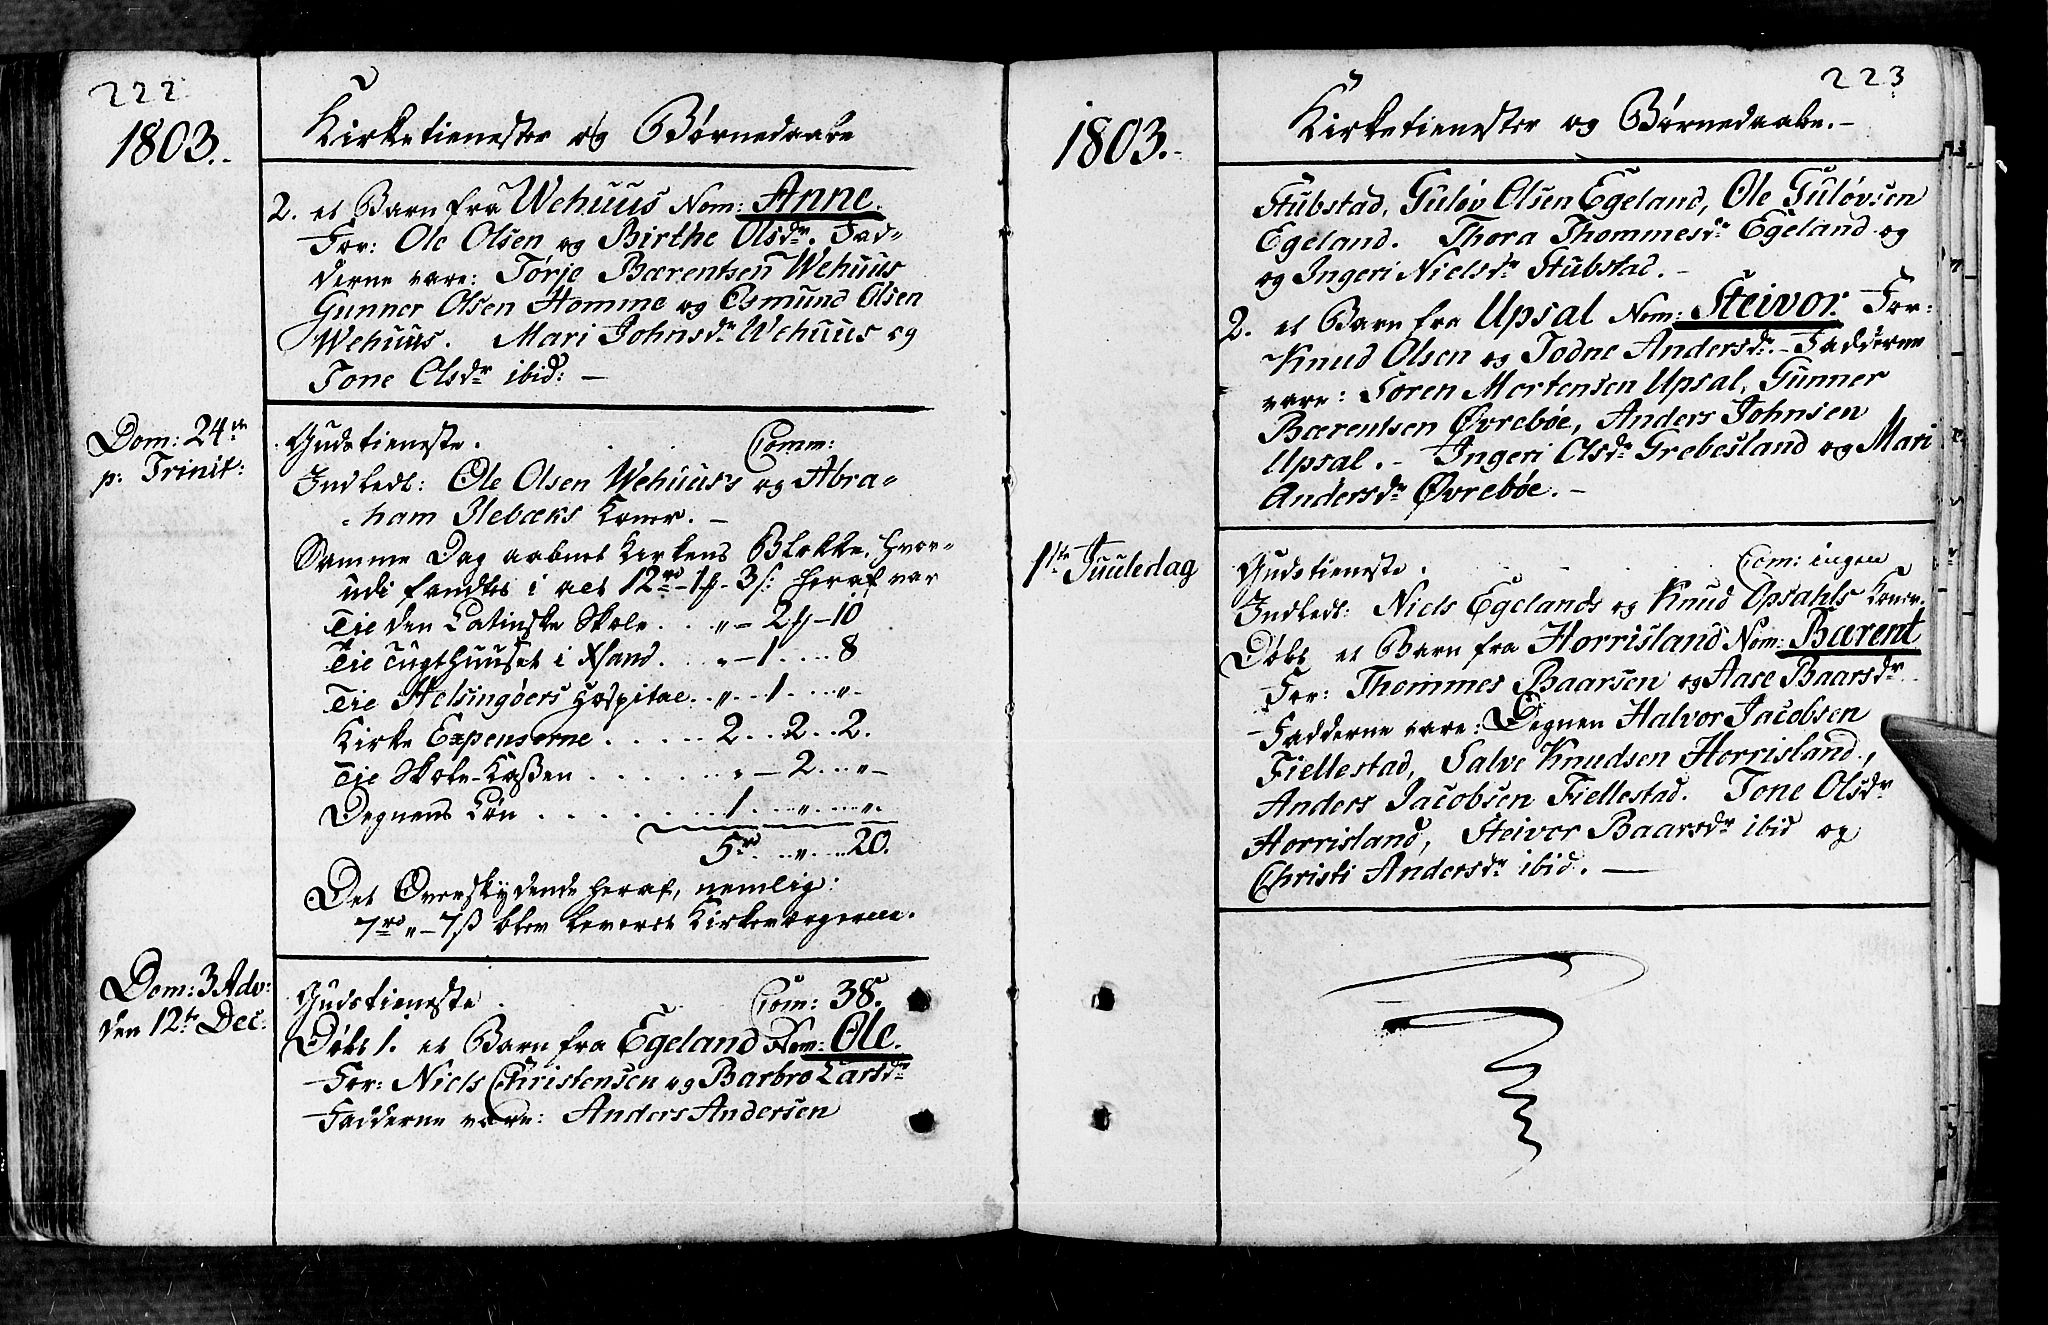 222
1803.-
Kirketienester og Børnedaabe
2. et Barn fra Wehuus Nom: Anne.
For: Ole Olsen og Birthe Olsdr. Fad-
derne vare: Tørje Bærentsen Wehuus
Gunner Olsen Homme og Osmund Olsen
Wehuus. Mari Johnsdr Wehuus og
Tone Olsdr ibid: -
Dom: 24de
p: Trinit:
Gudstieneste. Comm:
Indledt: Ole Olsen Wehuus's og Abra-
ham Ilebæks Koner. -
Samme Dag aabnet Kirkens Blokke, hvor-
udi fandtes i alt 12rd - 1 - 3 s: heraf var
Til den Latinske Skole . . " - 2 - 10
Til Tugthuuset i Xsand. . . " - 1 . . . 8
Til Helsingøers Hospital . . " . . 1 . . . "-
Kirke Expenserne . . . . . 2 . . 2 . . 2.
Til Skole-Kaßen . . . . . . " - 2 . . " -
Degnens Løn . . . . . . . 1 . . " . . . ".
5rd. . . " . . . 20.
Det Overskydende heraf, nemlig:
7rd " - 7ß blev leveret Kirkeværgerne.
Dom: 3 Adv:
den 12te Dec:
Gudstieneste . Com: 38.
Døbt 1. et Barn fra Egeland Nom: Ole.
For: Niels Christensen og Barbro Larsdr
Fadderne vare: Anders Andersen
223
1803.-
Kirketienester og Børnedaabe.-
Stubstad, Guløv Olsen Egeland, Ole Guløvsen
Egeland. Thora Thommesdr Egeland og
og Ingeri Nielsdr Stubstad. -
2. et Barn fra Upsal Nom: Steivor. For:
Knud Olsen og Todne Andersdr. - Fadderne
vare: Søren Mortensen Upsal, Gunner
Bærentsen Øvrebøe, Anders Johnsen
Upsal. - Ingeri Olsdr Grebesland og Mari
Andersdr Øvrebøe. -
1ste Juuledag
Gudstieneste. Com: ingen
Indledt: Niels Egelands og Knud Opsahls Koner.
Døbt et Barn fra Horrisland Nom: Bærent
For: Thommes Baarsen og Aase Baarsdr
Fadderne vare: Degnen Halvor Jacobsen
Fiellestad, Salve Knudsen Horrisland,
Anders Jacobsen Fiellestad. Tone Olsdr
Horrisland, Steivor Baarsdr ibid og
Christi Andersdr ibid. -